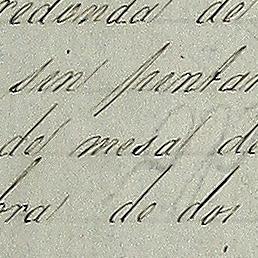 redonda de
sin pintar
de mesa de
bra de dos